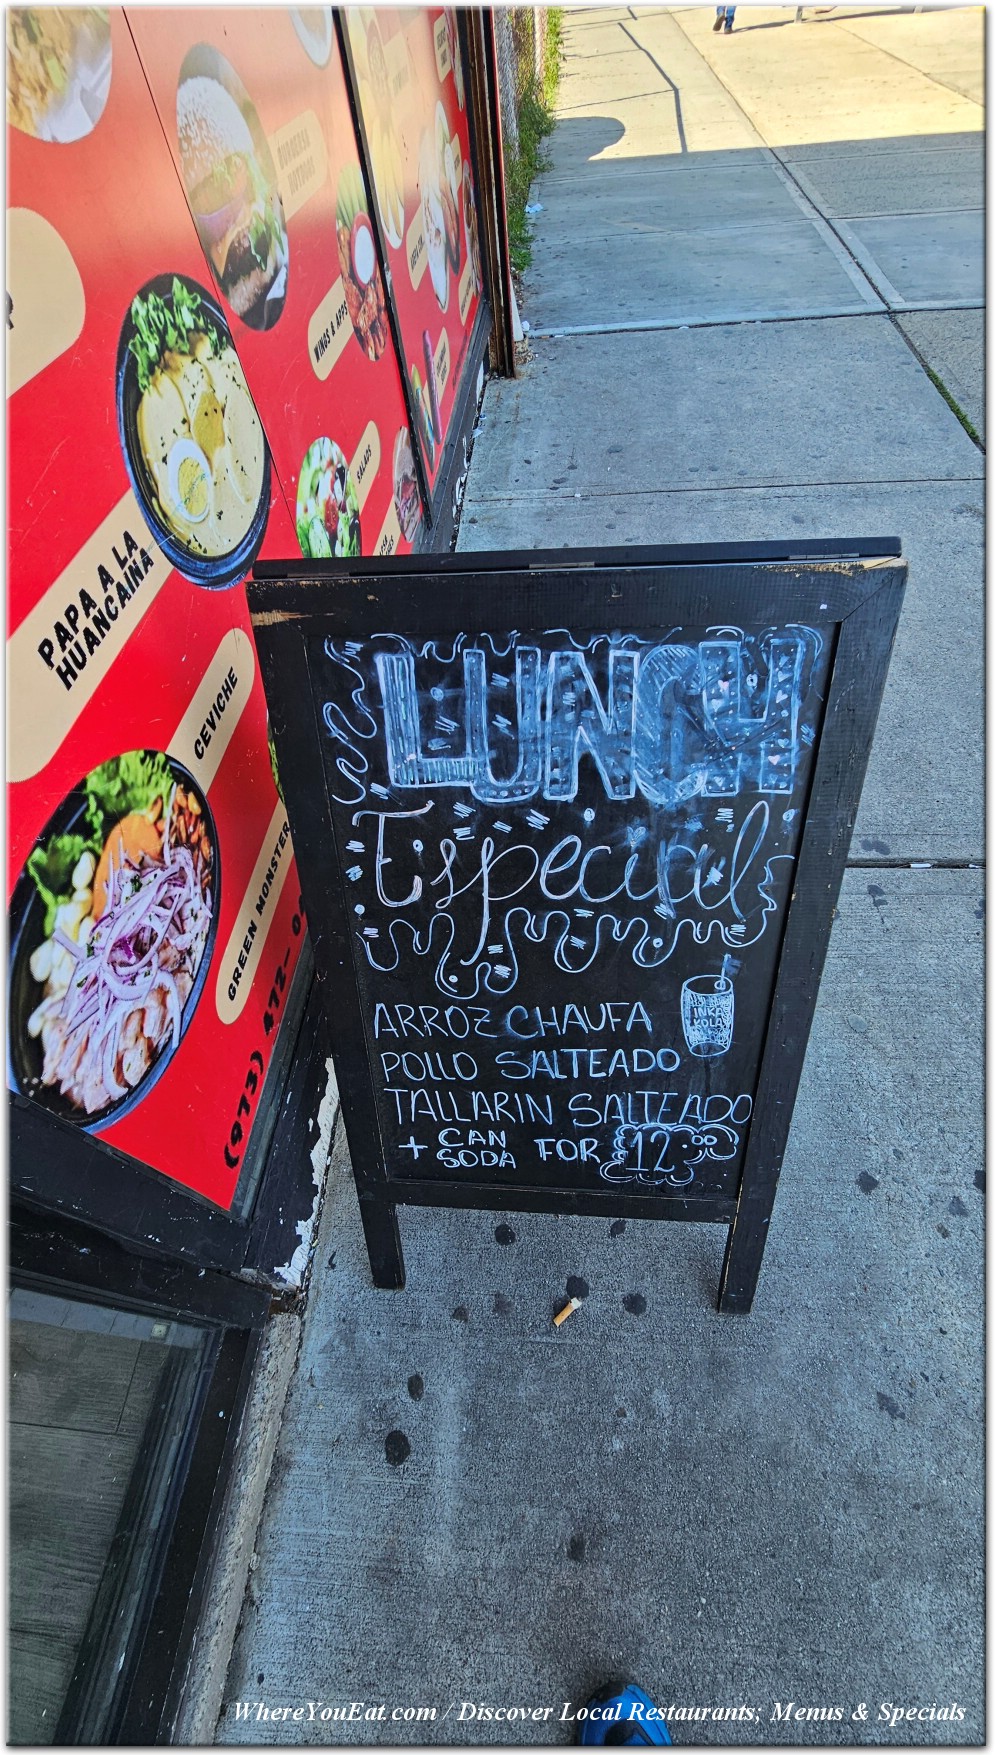 BURGERS &
HOTDOGS
WINGS & APPS
SALADS
PAPA A LA
HUANCAINA
CEVICHE
GREEN MONSTER
(973) 472-0
LUNCH
Especial
INKA
KOLA
ARROZ CHAUFA
POLLO SALTEADO
TALLARIN SALTEADO
+ CAN
SODA
FOR 12.00
WhereYouEat.com / Discover Local Restaurants; Menus & Specials